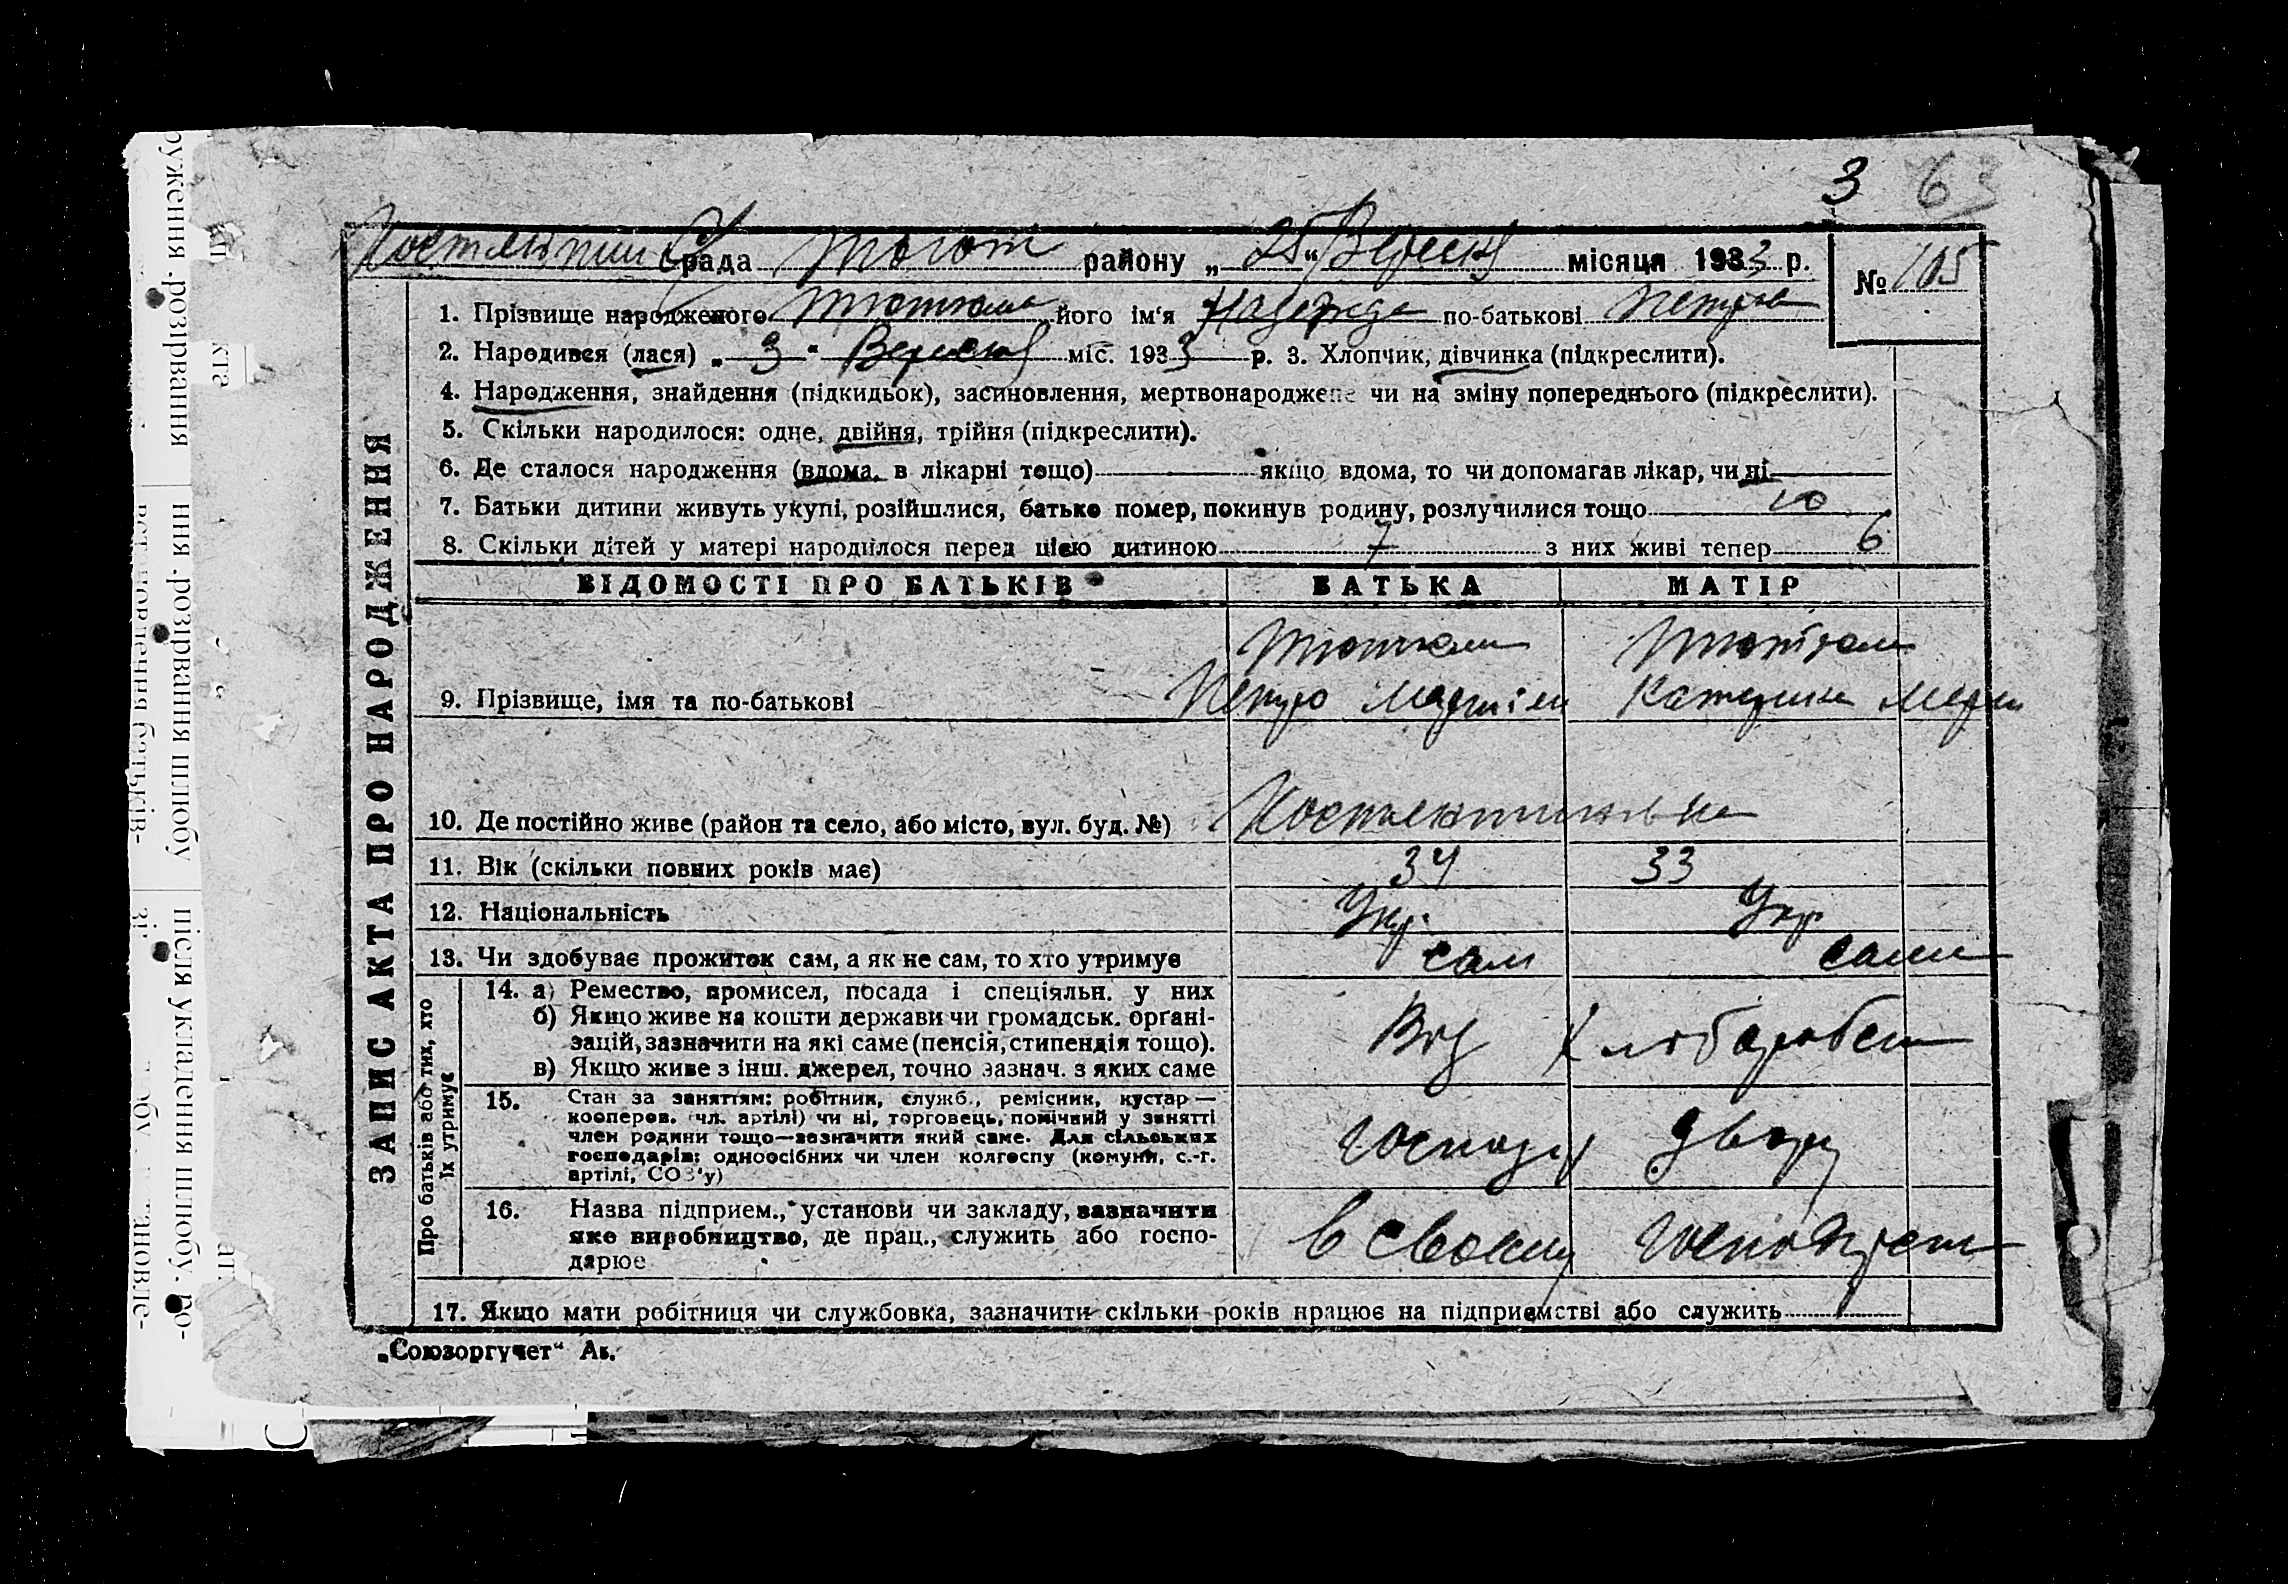 3 63
рада району „25“ Вересня місяця 1933 р. № 105
1. Прізвище народженого його ім‘я Надежда по-батькові Петров
2. Народився (лася) „3“ Вересня міс. 1933 р. 3. Хлопчик, дівчинка (підкреслити).
4. Народження, знайдення (підкидьок), засиновлення, мертвонароджене чи на зміну попереднього (підкреслити).
5. Скільки народилося: одне, двійня, трійня (підкреслити).
6. Де сталося народження (вдома, в лікарні тощо) якщо вдома, то чи допомагав лікар, чи ні
7. Батьки дитини живуть укупі, розійшлися, батько помер, покинув родину, розлучилися тощо
8. Скільки дітей у матері народилося перед цією дитиною 7 з них живі тепер 6
ЗАПИС АКТА ПРО НАРОДЖЕННЯ
ВІДОМОСТІ ПРО БАТЬКІВ БАТЬКА МАТІР
9. Прізвище, імя та по-батькові Петро Катерина
10. Де постійно живе (район та село, або місто, вул. буд. №)
11. Вік (скільки повних років має) 34 33
12. Національність Укр. Укр.
13. Чи здобуває прожиток сам, а як не сам, то хто утримує сам сама
Про батьків або тих, хто
їх утримує
14. а) Ремество, промисел, посада і спеціяльн. у них
б) Якщо живе на кошти держави чи громадськ. орґані-
зацій, зазначити на які саме (пенсія, стипендія тощо).
в) Якщо живе з інш. джерел, точно зазнач. з яких саме
Хліборобст
15. Стан за заняттям: робітник, служб., ремісник, кустар —
кооперов. (чл. артілі) чи ні, торговець, помічний у занятті
член родини тощо—зазначити який саме. Для сільських
господарів: одноосібних чи член колгоспу (комуни, с.-г.
артілі, СОЗ'у)
господ двору
16. Назва підприєм., установи чи закладу, зазначити
яке виробництво, де прац., служить або госпо-
дарює
в своєму
17. Якщо мати робітниця чи службовка, зазначити скільки років працює на підприємстві або служить
„Союзоргучет“ Ак.